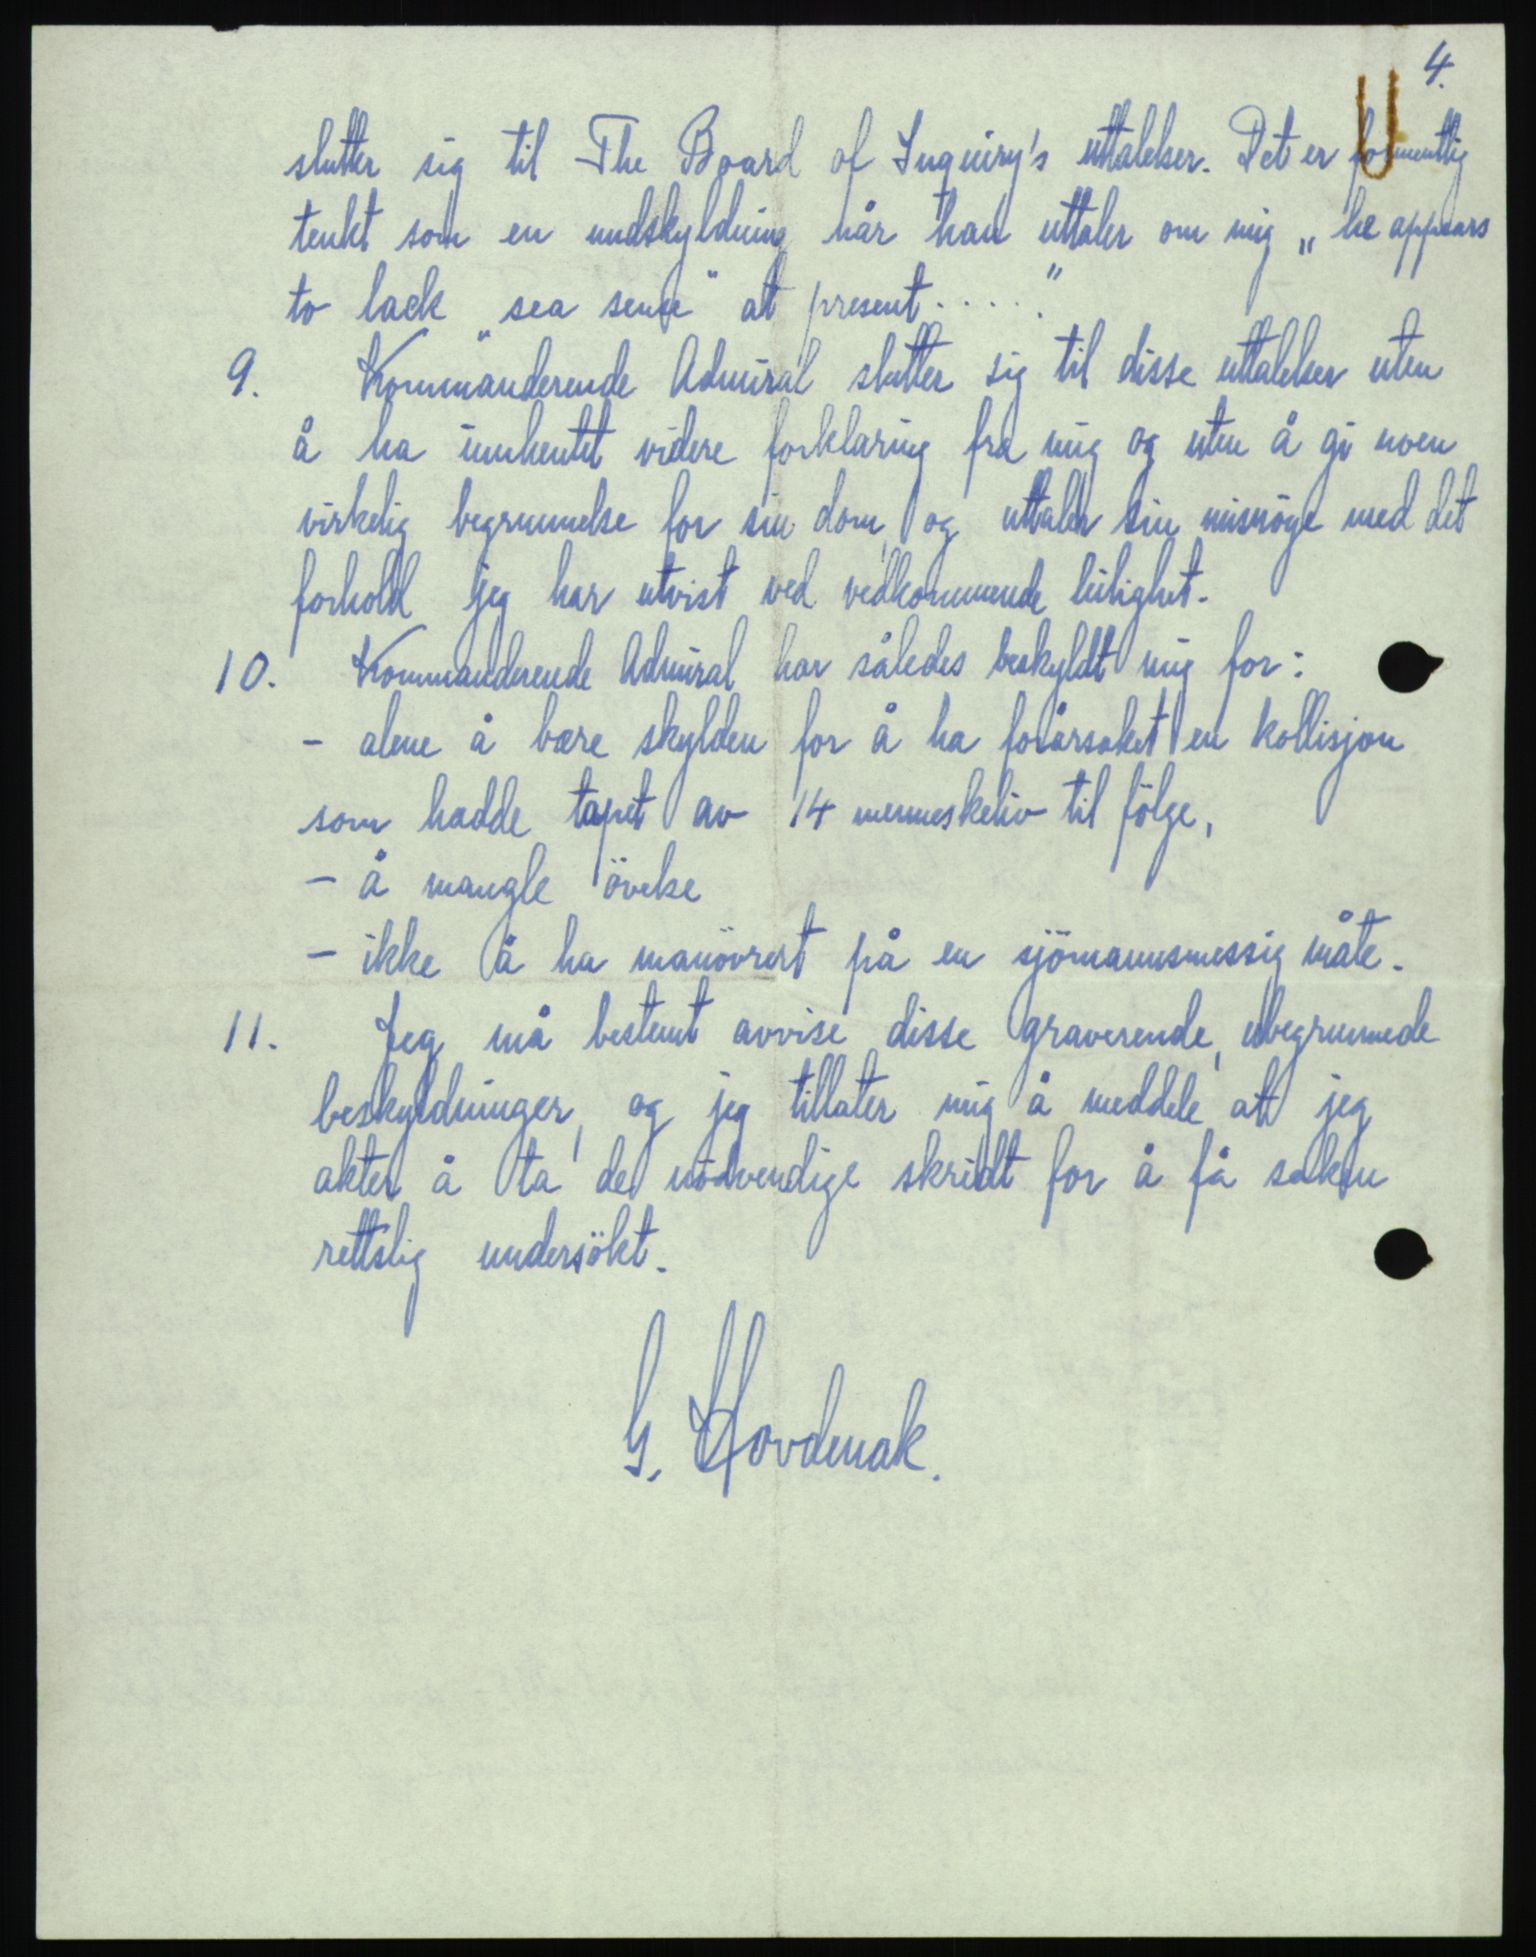 4.
slutter sig til The Board of Inquiry's uttalelser. Det er formentlig
tenkt som en undskyldning når han uttaler om mig „he appears
to lack „sea sense" at present....."
9. Kommanderende Admiral slutter sig til disse uttalelser uten
å ha innhentet videre forklaring fra mig og uten å gi noen
virkelig begrunnelse for sin dom, og uttaler sin misnöye med det
forhold jeg har utvist ved vedkommende leilighet.
10. Kommanderende Admiral har således beskyldt mig for:
- alene å bære skylden for å ha forårsaket en kollisjon
som hadde tapet av 14 menneskeliv til fölge,
- å mangle övelse
- ikke å ha manövrert på en sjömannsmessig måte.
11. Jeg må bestemt avvise disse graverende, ubegrunnede
beskyldninger, og jeg tillater mig å meddele at jeg
akter å ta de nödvendige skridt for å få saken
rettslig undersökt.
G. Hovdenak.